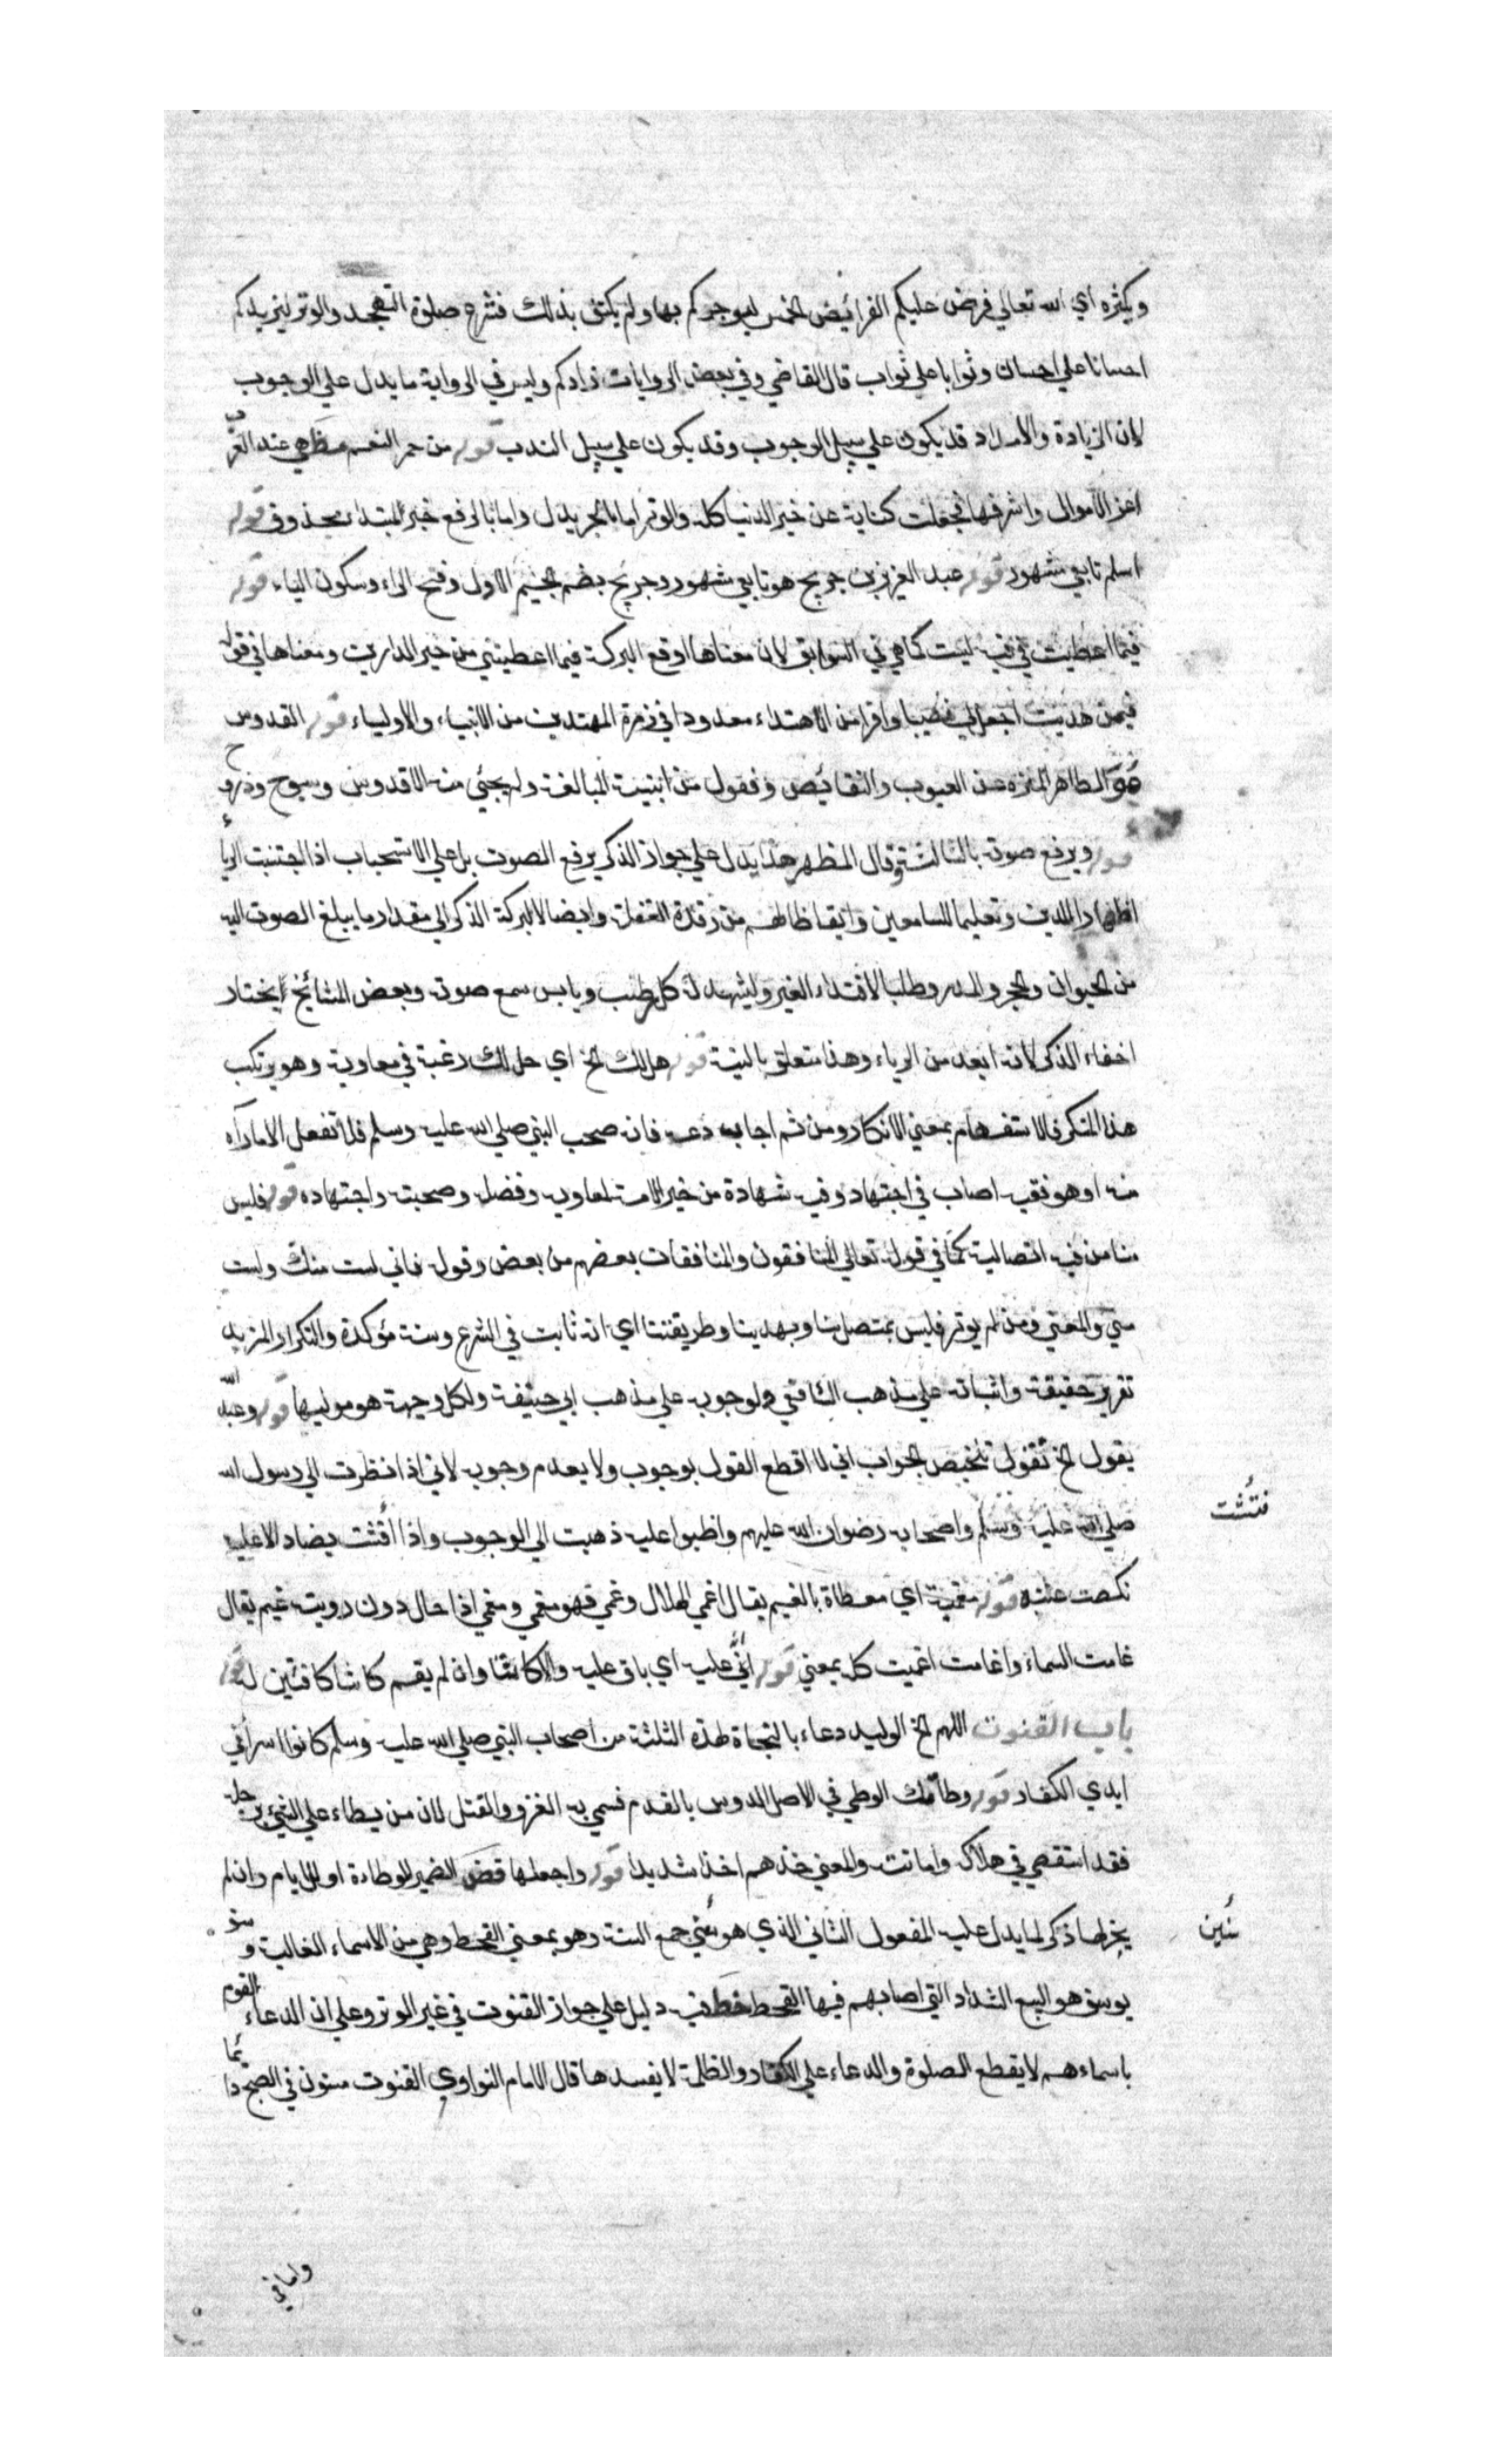 ويكثره اي الله تعالي فرض عليكم الفرائيض الخمس ليوجركم بها ولم يكتف بذلك فشرع صلوة التهجد والوتر ليزيدكم
احسانا علي احسان وثوابا علي ثواب قال القاضي وفي بعض الروايات زادكم وليس في الرواية ما يدل علي الوجوب
لان الزيادة والامداد قد يكون علي سبيل الوجوب وقد يكون علي سبيل الندب قوله من حمر النعم هي عند العرب
اعز الاموال واشرفها فجعلت كناية عن خير الدنيا كله والوتر اما بالجر بدل واما بالرفع خبر المبتداء محذوف قوله
اسلم تابعي مشهور قوله عبد العزيز بن جريج هو تابعي مشهور وجريج بضم الجيم الاول وفتح الراء وسكون الياء قوله
فيما اعطيت في فيه ليست كما هي في السوابق لان معناها اوقع البركة فيما اعطيتني من خير الدارين ومعناها في قوله
فيمن هديت اجعل لي نصيبا وافرا من الاهتداء معدودا في زمرة المهتدين من الانبياء والاولياء قوله القدوس
هو الطاهر المنزه عن العيوب والنقائيص وفعول من ابنية المبالغة ولم يجئي منه الا قدوس وسبوح وذروح
قوله ويرفع صوته بالثالثة وقال المظهر هذا يدل علي جواز الذكر برفع الصوت بل علي الاستحباب اذا اجتنبت الرياء
اظهارا للدين وتعليما للسامعين وايقاظا لهم من رقدة الغفلة وايضا لا لبركة الذكر الي مقدار ما يبلغ الصوت اليه
من الحيوان والحجر والمدر وطلبا لاقتداء الغير وليشهد له كل رطب ويابس سمع صوته وبعض المشائخ يختار
اخفاء الذكر لانه ابعد من الرياء وهذا متعلق بالنية قوله هل لك الخ اي هل لك رغبة في معاوية وهو يرتكب
هذا المنكر فالاستفهام بمعني الانكار ومن ثم اجاب دعه فانه صحب النبي صلي الله عليه وسلم فلا تفعل الا ما رآه
منه او هو فقيه اصاب في اجتهاد وفيه شهادة من خير الامة لمعاوية وفضله وصحبته واجتهاده قوله فليس
منا من فيه اتصالية كما في قوله تعالي المنافقون والمنافقات بعضهم من بعض وقوله فاني لست منك ولست
مني والمعني فمن لم يوتر فليس بمتصل بنا وبهدينا وطريقتنا اي انه ثابت في الشرع وسنة مؤكدة والتكرار لمزيد
تقرير حقيقة واثباته علي مذهب الشافعي ولوجوب علي مذهب ابي حنيفة ولكل وجهة هو موليها قوله وعبد الله
يقول الخ تقول تلخيص الجواب اني لا اقطع القول بوجوبه ولا بعدم وجوبه لاني اذا نظرت الي رسول الله
صلي الله عليه وسلم واصحابه رضوان الله عليهم واظبوا عليه ذهبت الي الوجوب واذا فتشت
فتشت
نكصت عنه قوله مغمية اي مغطاة بالغيم يقال اغمي الهلال وغمي فهو مغمي ومغمي اذا حال دون رويته غيم يقال
غامت السماء واغامت اغميت كله بمعني قوله عليه اي باق عليه وان لم يقسم له قوله
باب القنوت اللهم الخ الوليد دعاء بالنجاة لهذه الثلثة من اصحاب النبي صلي الله عليه وسلم كانوا اسرا في
ايدي الكفار قوله وطأتك الوطي في الاصل الدوس بالقدم فسمي به الغزو والقتل لان من يطاء علي الشيء برجله
فقد استقصي في هلاكه واماتته والمعني خذهم اخذا شديدا قوله واجعلها الضمير للوطاءة او للايام وان لم
يجر لها ذكر لما يدل عليه المفعول الثاني الذي هو سنين جمع السنة وهو بمعني القحط وهي من الاسماء الغالبة وسنو
سنين
يوسف هو السبع الشداد التي اصابهم فيها القحط فيه دليل علي جواز القنوت في غير الوتر وعلي ان الدعاء القوم
باسماءهم لا يقطع الصلوة والدعاء علي الكفار والظلمة لا يفسدها قال الامام النواوي القنوت مسنون في الصبح دائما
واما في